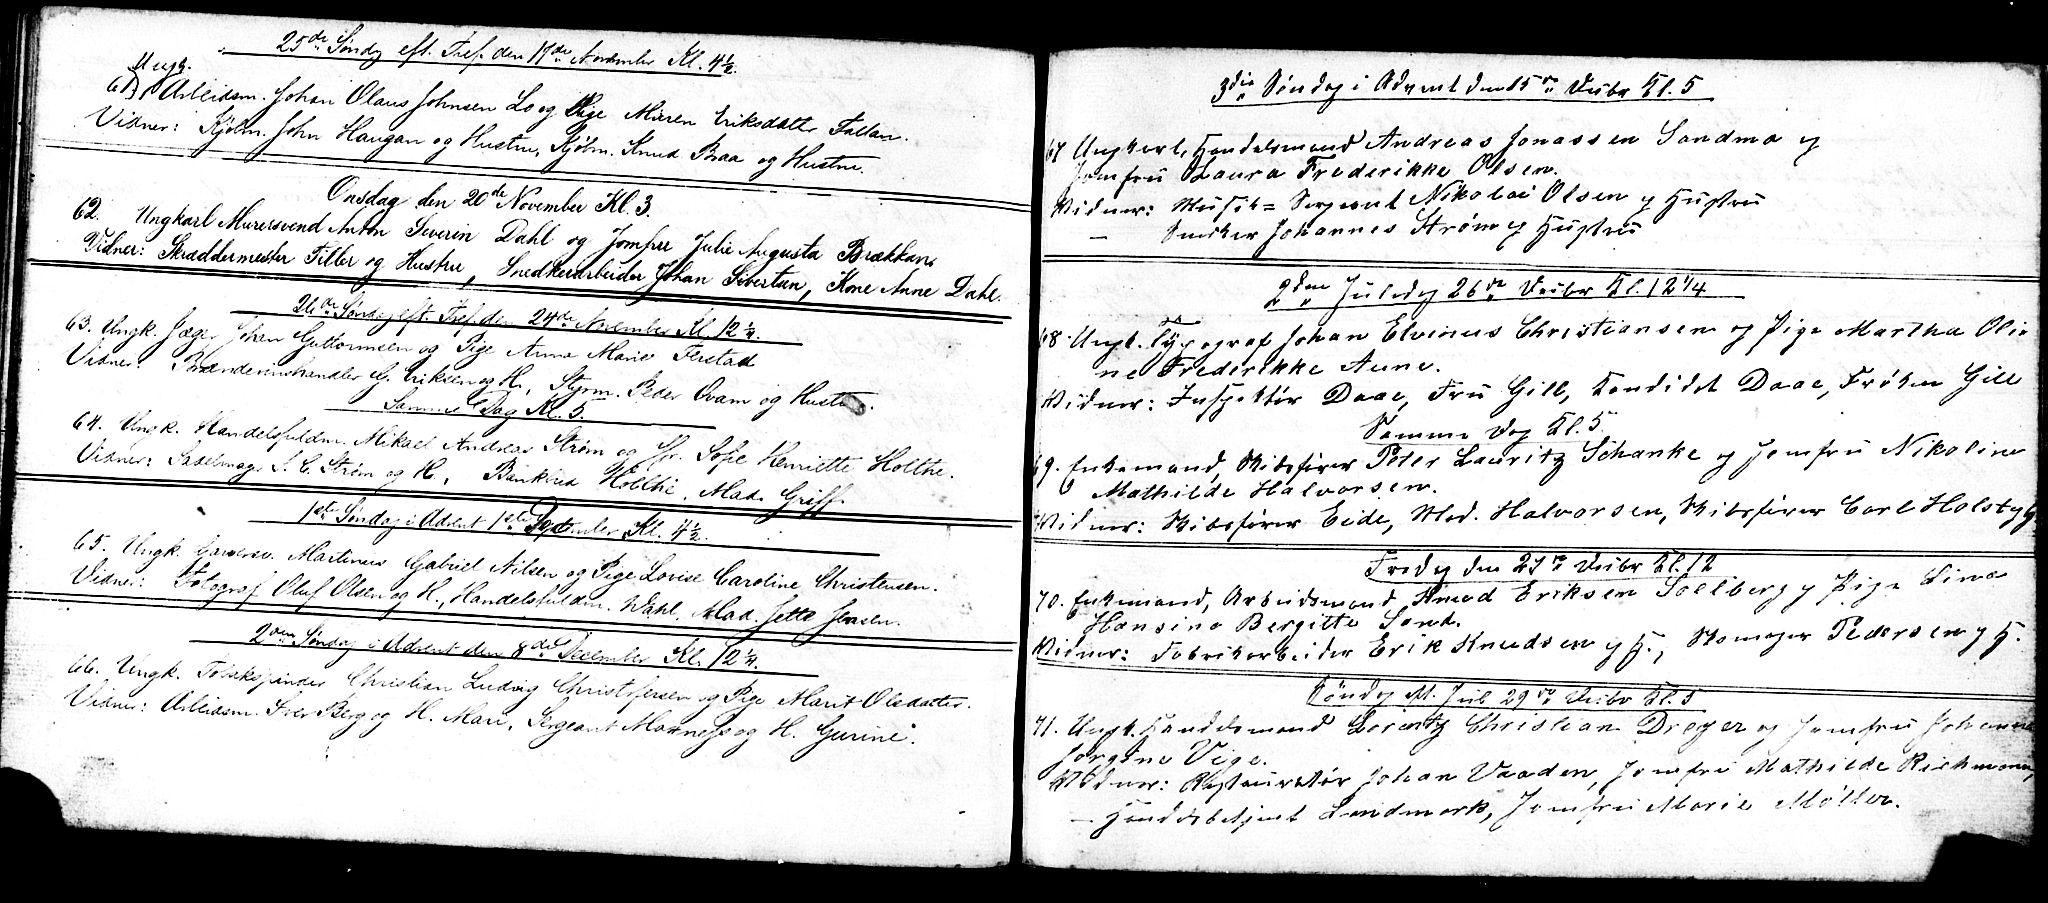 25de Søndag eft. Tref. den 17de November Kl. 4½.
Ungk.
61) Arbeidsm. Johan Olaus Johnsen Lo og Pige Maren Eriksdatter Fallan.
Vidner: Kjøbm. John Haugan og Hustru, Kjøbm. Knud Braa og Hustru.
Onsdag den 20de November Kl. 3.
62. Ungkarl Murersvend Anton Severin Dahl og Jomfru Julie Augusta Brækkan.
Vidner: Skræddermester Tiller og Hustru, Snedkerarbeider Johan Sivertsen, Kone Anne Dahl.
26de Søndag eft. Tref. den 24de November Kl. 12½.
63. Ungk. Jæger Johan Guttormsen og Pige Anna Marie Ferstad
Vidner: Brændevinshandler G. Eriksen og H., Styrm. Peder Qvam og Hustru.
Samme Dag Kl. 5.
64. Ungk. Handelsfuldm. Mikael Andreas Strøm og Jfr. Sofie Henriette Holthe.
Vidner: Sadelmager S. C. Strøm og H., Bankbud Holthe, Mad. Griff.
1ste Søndag i Advent 1ste December Kl. 4½.
65. Ungk. Garversv. Martinus Gabriel Nilsen og Pige Lovise Caroline Christensen.
Vidner: Fotograf Oluf Olsen og H., Handelsfuldm. Wahl, Mad. Jette Jensen.
2den Søndag i Advent den 8de December Kl. 12½.
66. Ungk. Tobakspinder Christian Ludvig Christofersen og Pige Marit Olsdatter.
Vidner: Arbeidsm. Iver Berg og H. Mari, Sergeant og H. Gurine.
3die Søndag i Advent den 15de Decbr Kl. 5
67 Ungkarl, Handelsmand Andreas Jonassen Sandmo og
Jomfru Laura Frederikke Olsen.
Vidner: Musik= Sergeant Nikolai Olsen og Hustru
— Snedker Johannes Strøm og Hustru
2den Juledag 26de Decbr Kl. 12 1/4
68. Ungk. Typograf Johan Elvinus Christiansen og Pige Martha Oli=
ne Frederikke Aune.
Vidner: Inspektør Daae, Fru Gill, Kandidat Daae, Frøken Gill
Samme Dag Kl. 5.
69. Enkemand, Skibsfører Peter Lauritz Schanke og Jomfru Nikoline
Mathilde Halvorsen.
Vidner: Skibsfører Eide, Mad. Halvorsen, Skibsfører Carl Holst og H.
Fredag den 27de Decbr Kl. 12
70. Enkemand, Arbeidsmand Knud Eriksen Solberg og Pige Lina
Hansina Bergitte Sand.
Vidner: Fabrikarbeider Erik Knudsen og H., Skomager Pedersen og H.
Søndag M. Jul 29de Decbr Kl. 5
71. Ungk. Handelsmand Lorentz Christian Dreyer og Jomfru Johanna
Jørgine Vige.
Vidner: Restauratør Johan Vaaden, Jomfru Mathilde Richmann,
— Handelsbetjent Landmark, Jomfru Marie Møller.